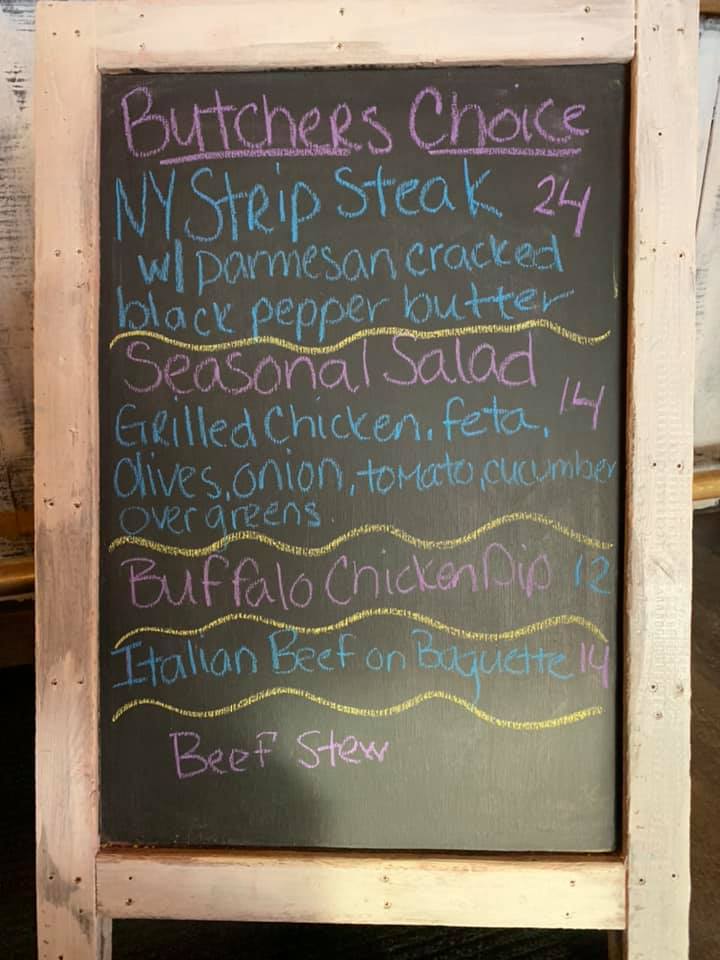 Butchers Choice
NY Strip Steak 24
w/ parmesan cracked
black pepper butter
Seasonal Salad
14
Grilled Chicken, feta,
Olives, onion, tomato, cucumber
over greens
Buffalo Chicken Dip 12
Italian Beef on Baguette 14
Beef Stew